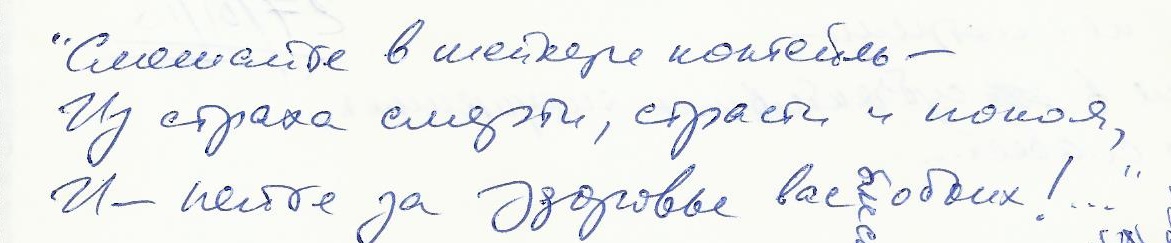 "Смешайте в шейкере коктейль —
Из страха смерти, страсти и покоя,
И — пейте за здоровье вас обоих!..."